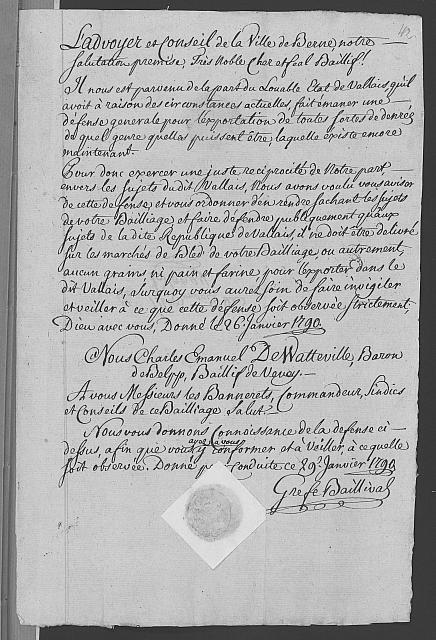 42
Ladvoyer et Conseil de la Ville de Berne, notre
salutation premise, Très Noble Cher et féal Baillif!
Il nous est parvenu de la part du Louable Etat de Vallais, qu'il
avoit à raison des circonstances actuelles, fait émaner une
défense generale pour l'exportation de toutes sortes de denrées
de quel genre quelles puissent être, laquelle existe encore
maintenant.
Pour donc exercer une juste réciprocité de Notre part
envers les sujets dudit Vallais, Nous avons voulu vous aviser
de cette defense, et vous ordonner d'en rendre sachant les sujets
de votre Bailliage, et faire défendre publiquement qu'aux
sujets de la dite Republique de Vallais, il ne doit être delivré
sur les marchés de Bled de votre Bailliage, ou autrement,
aucun grains ni pain et farine pour l'exporter dans le
dit Vallais, Surquoy vous aurez soin de faire invigiler
et veiller à ce que cette défense soit observée strictement,
Dieu avec vous, Donné le 26 Janvier 1790
Nous Charles Emanuel De Watteville, Baron
de Belpp, Baillif de Vevey.
A vous Messieurs les Bannerets, Commandeur, Sindics
et Conseils de ce Bailliage Salut.
Nous vous donnons Connoissance de la defense ci-
dessus, afin que vous ayez à vous y conformer et à Veiller, à ce quelle
soit observée. Donné pr Conduite ce 29e Janvier 1790
Grefe Baillival